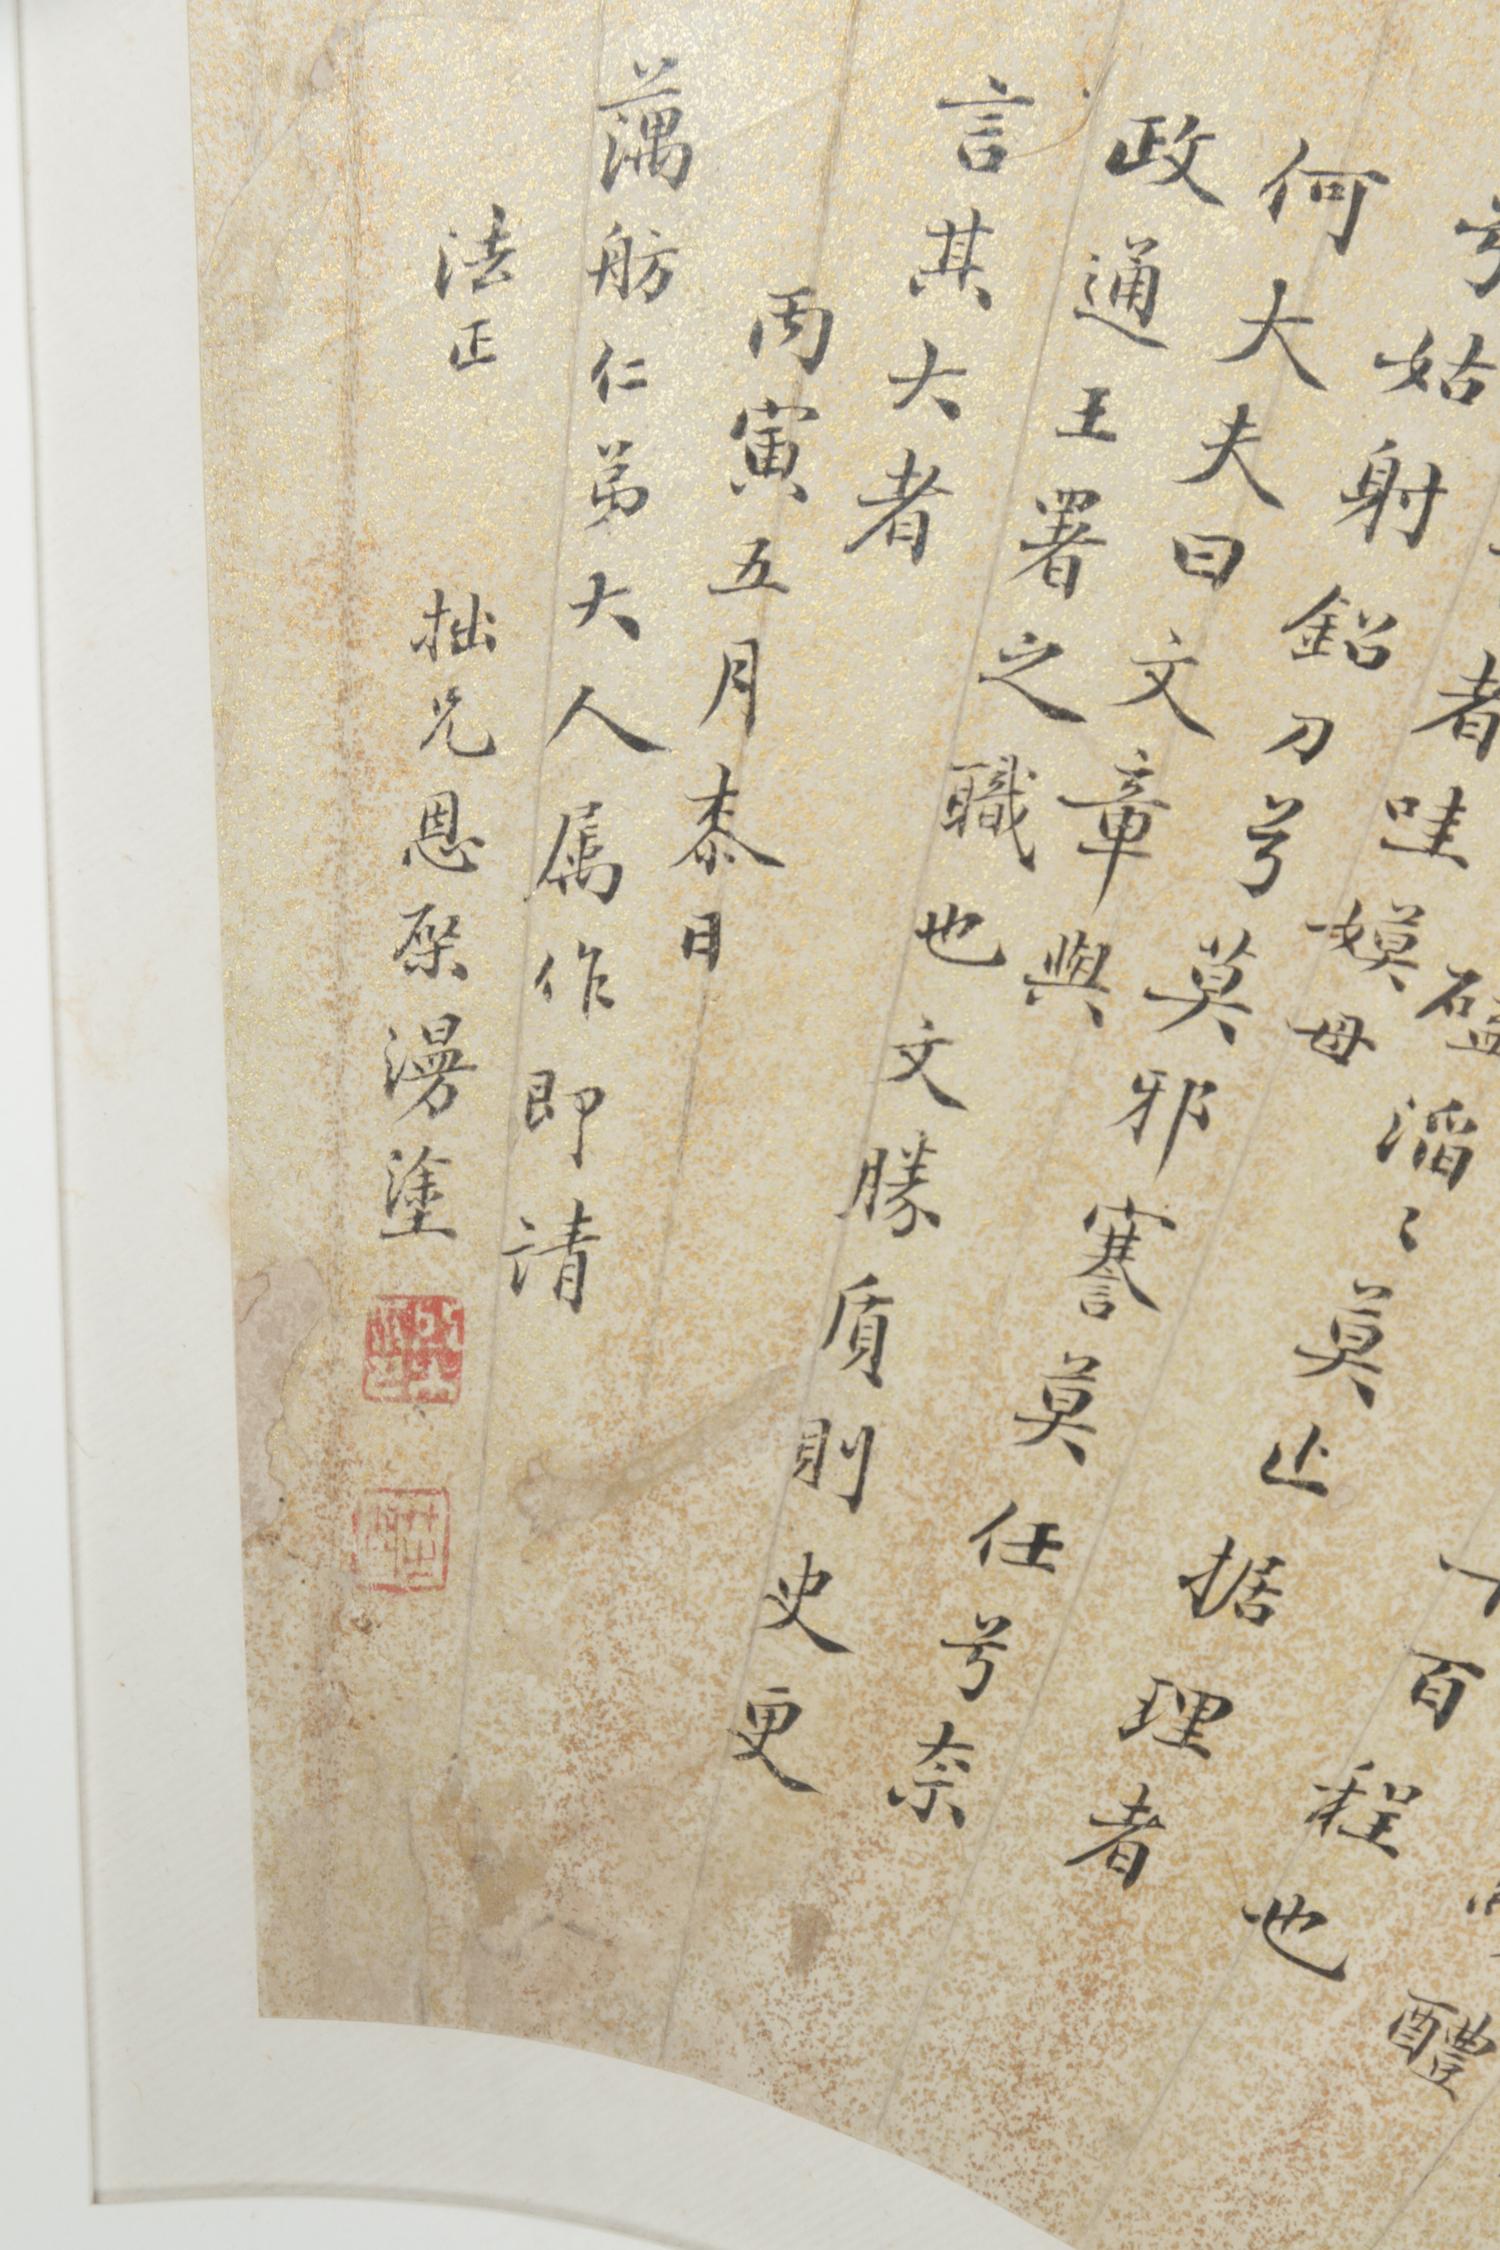 醴
百程也
滔〻莫止据理者
者哇嫫母
姑射鉛刀兮莫邪謇莫任兮奈
何大夫曰文章與
政通王署之職也文勝質則史更
言其大者
丙寅五月桼日
藕舫仁弟大人属作即請
法正 拙兄恩棨漫塗